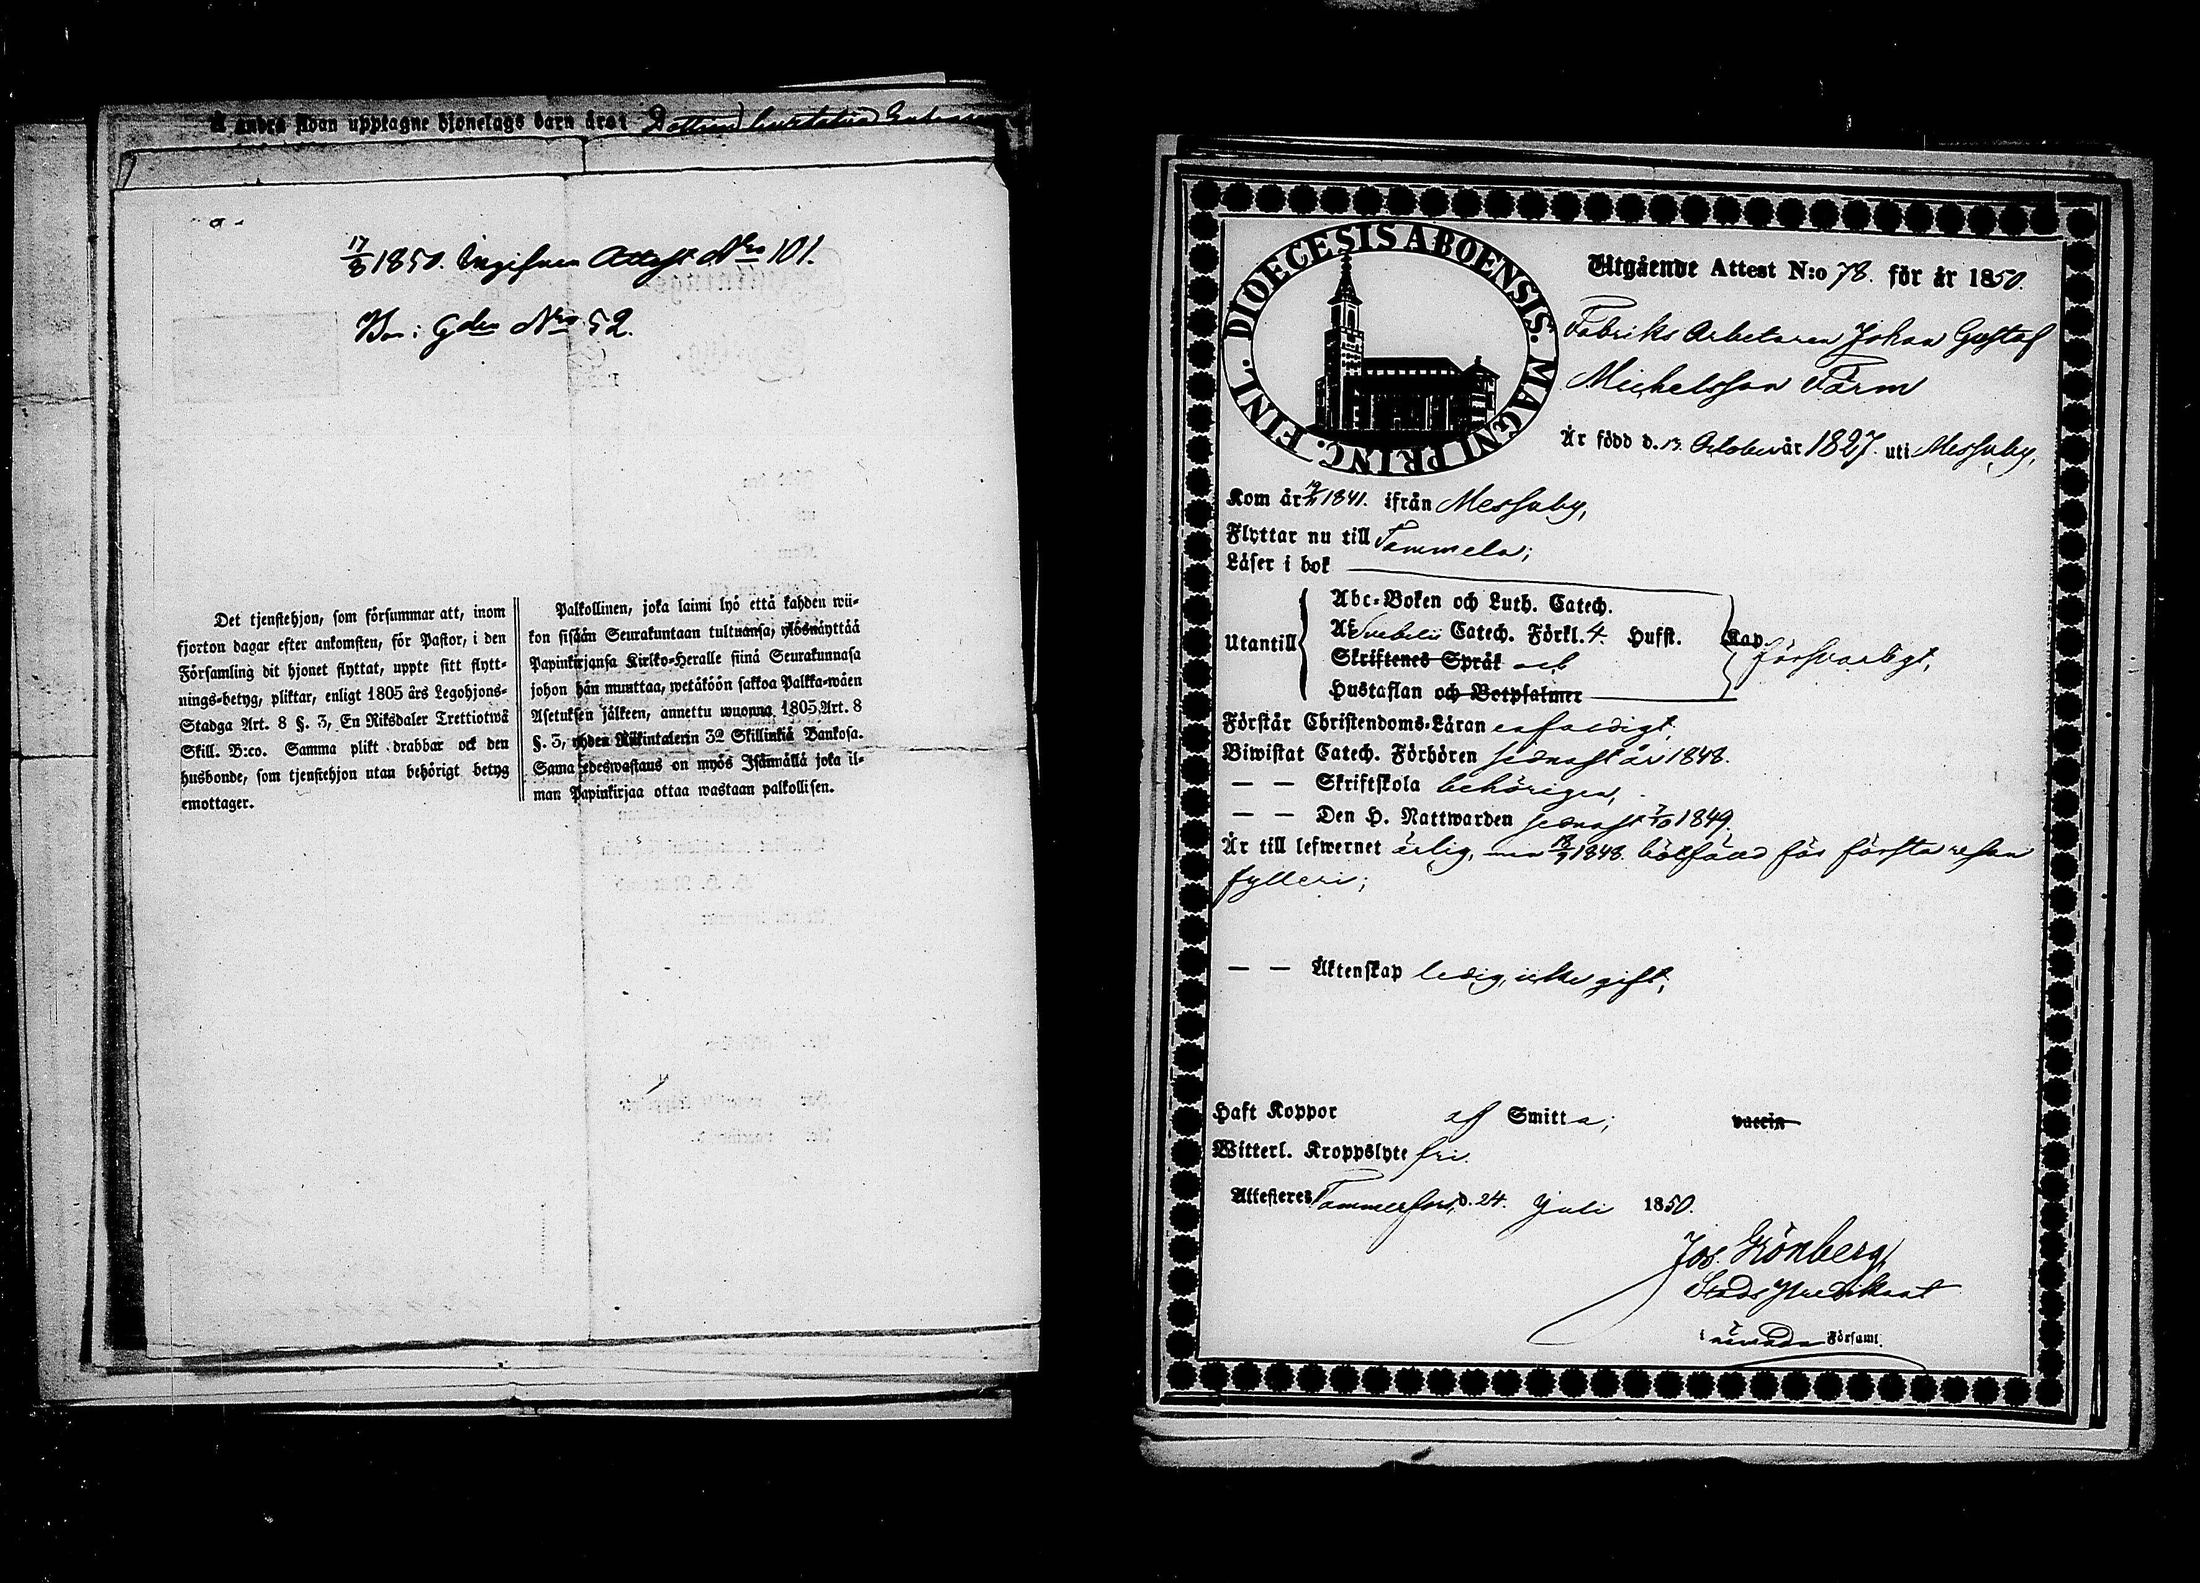 Å andra sidan upptagne hjonelags barn äro:
17/8 1850. Ingifven Attest Nro 101.
Det tjenstehjon, som försummar att, inom
fjorton dagar efter ankomsten, för Pastor, i den
Församling dit hjonet flyttat, uppte sitt flytt-
nings-betyg, pliktar, enligt 1805 års Legohjons-
Stadga Art. 8 §. 3, En Riksdaler Trettiotwå
Skill. B:co. Samma plikt drabbar ock den
husbonde, som tjenstehjon utan behörigt betyg
emottager.
Palkollinen, joka laimi lyö että kahden wii-
kon sisään Seurakuntaan tultuansa, ylösnäyttää
Papinkirjansa Kirkko-Heralle siinä Seurakunnasa
johon hän muuttaa, wetäköön sakkoa Palkka-wäen
Asetuksen jälkeen, annettu wuonna 1805 Art. 8
§. 3, yhden Riikintalerin 32 Skillinkiä Bankosa.
Sama edeswastaus on myös Isännällä joka il-
man Papinkirjaa ottaa wastaan palkollisen.
DIOECESIS ABOENSIS. MAGNI PRINC. FINL.
Utgående Attest N:o 78. för år 1850.
Fabriks Arbetaren Johan Gustaf
Michelsson Färm
Är född d. 13. October år 1827. uti Messuby,
Kom år 19/11 1841. ifrån Messuby,
Flyttar nu till Tammela;
Läser i bok
Utantill
Abc-Boken och Luth. Catech.
Af Svebelii Catech. Förkl. 4. Hufst. Kap.
Skriftenes Språk och
Hustaflan och Botpsalmer
försvarligt,
Förstår Christendoms-Läran enfaldigt,
Biwistat Catech. Förhören sednast år 1848.
— — Skriftskola behörigen,
— — Den H. Nattwarden sednast 7/10 1849.
Är till lefwernet ärlig, men 18/9 1848. bötfälld för första resan
fylleri;
— — Äktenskap ledig, icke gift;
Haft Koppor af Smitta; vaccin
Witterl. Kroppslyte fri.
Attesteres Tammerfors, d. 24. Juli 1850.
Jos. Grönberg,
Stads Predikant
i nämnda Församl.